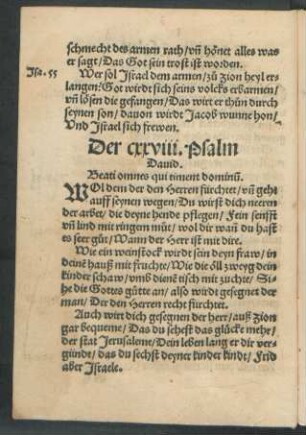 schmecht des armen rath/ vñ hönet alles was
er sagt/ Das Got sein trost ist worden.
Isa. 55
Wer sol Israel dem armen/ zů Zion heyl er-
langen: Got wirdt sich seins volcks erbarmen/
vñ lösen die gefangen/ Das wirt er thůn durch
seynen son/ dauon wirdt Jacob wunne hon/
Vnd Israel sich frewen.
Der cxxviii. Psalm
Dauid.
Beati omnes qui timent dominũ.
WOl dem der den Herren fürchtet/ vñ geht
auff seynen wegen/ Du wirst dich neeren
der arbet/ die deyne hende pflegen/ Fein senfft
vñ lind mit ringem můt/ wol dir wañ du hast
es seer gůt/ Wann der Herr ist mit dire.
Wie ein weinstock wirdt sein deyn fraw/ in
deinẽ hauß mit fruchte/ Wie die öll zweyg dein
kinder schaw/ vmb dienẽ tisch mit zuchte/ Si-
he die Gottes gütte an/ also wirdt gesegnet der
man/ Der den Herren recht fürchtet.
Auch wirt dich gesegnen der herr/ auß Zion
gar bequeme/ Das du sehest das glücke mehr/
der stat Jerusaleme/ Dein leben lang er dir ver-
gündt/ das du sechst deyner kinder kindt/ Frid
aber Israele.